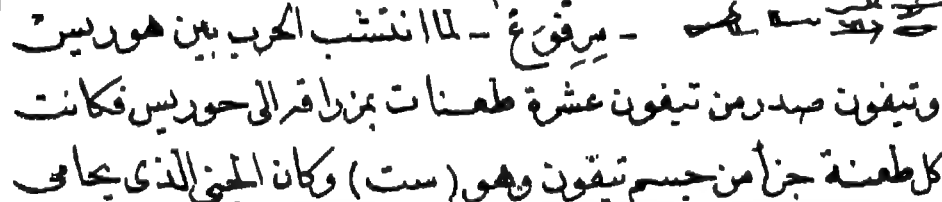 - سِرِفوَغ - لما انتشب الحرب بين هوريس
وتيفون صدر من تيفون عشرة طعنات بمزراقه الى حوريس فكانت
كل طعنة جزأ من جسم تيفون وهو (ست) وكان الجزء الذى يحامى